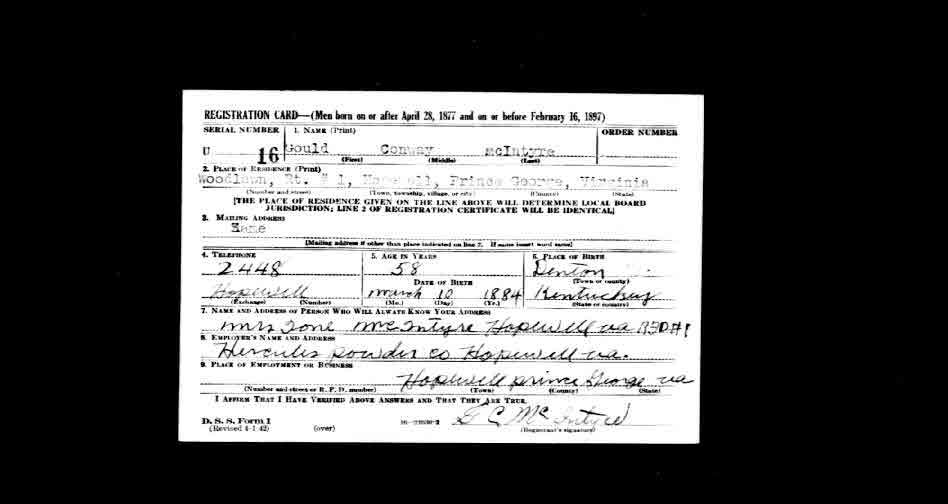 REGISTRATION CARD—(Men born on or after April 28, 1877 and on or before February 16, 1897)
SERIAL NUMBER 1. NAME (Print) ORDER NUMBER
U 16 Gould Conway McIntyre
(First) (Middle) (Last)
2. PLACE OF RESIDENCE (Print)
Woodlawn, Rt. # 1, Hopewell, Prince George, Virginia
(Number and street) (Town, township, village, or city) (County) (State)
[THE PLACE OF RESIDENCE GIVEN ON THE LINE ABOVE WILL DETERMINE LOCAL BOARD
JURISDICTION; LINE 2 OF REGISTRATION CERTIFICATE WILL BE IDENTICAL]
3. MAILING ADDRESS
Same
[Mailing address if other than place indicated on line 2. If same insert word same]
4. TELEPHONE 5. AGE IN YEARS 6. PLACE OF BIRTH
2448 58 Denton
DATE OF BIRTH (Town or county)
Hopewell March 10 1884 Kentucky
(Exchange) (Number) (Mo.) (Day) (Yr.) (State or country)
7. NAME AND ADDRESS OF PERSON WHO WILL ALWAYS KNOW YOUR ADDRESS
Mrs Ione McIntyre Hopewell va RFD#1
8. EMPLOYER'S NAME AND ADDRESS
Hercules powder co Hopewell va.
9. PLACE OF EMPLOYMENT OR BUSINESS
Hopewell prince George va
(Number and street or R. F. D. number) (Town) (County) (State)
I AFFIRM THAT I HAVE VERIFIED ABOVE ANSWERS AND THAT THEY ARE TRUE.
G C McIntyre
D. S. S. Form 1
(Revised 4-1-42) (over) (Registrant's signature)